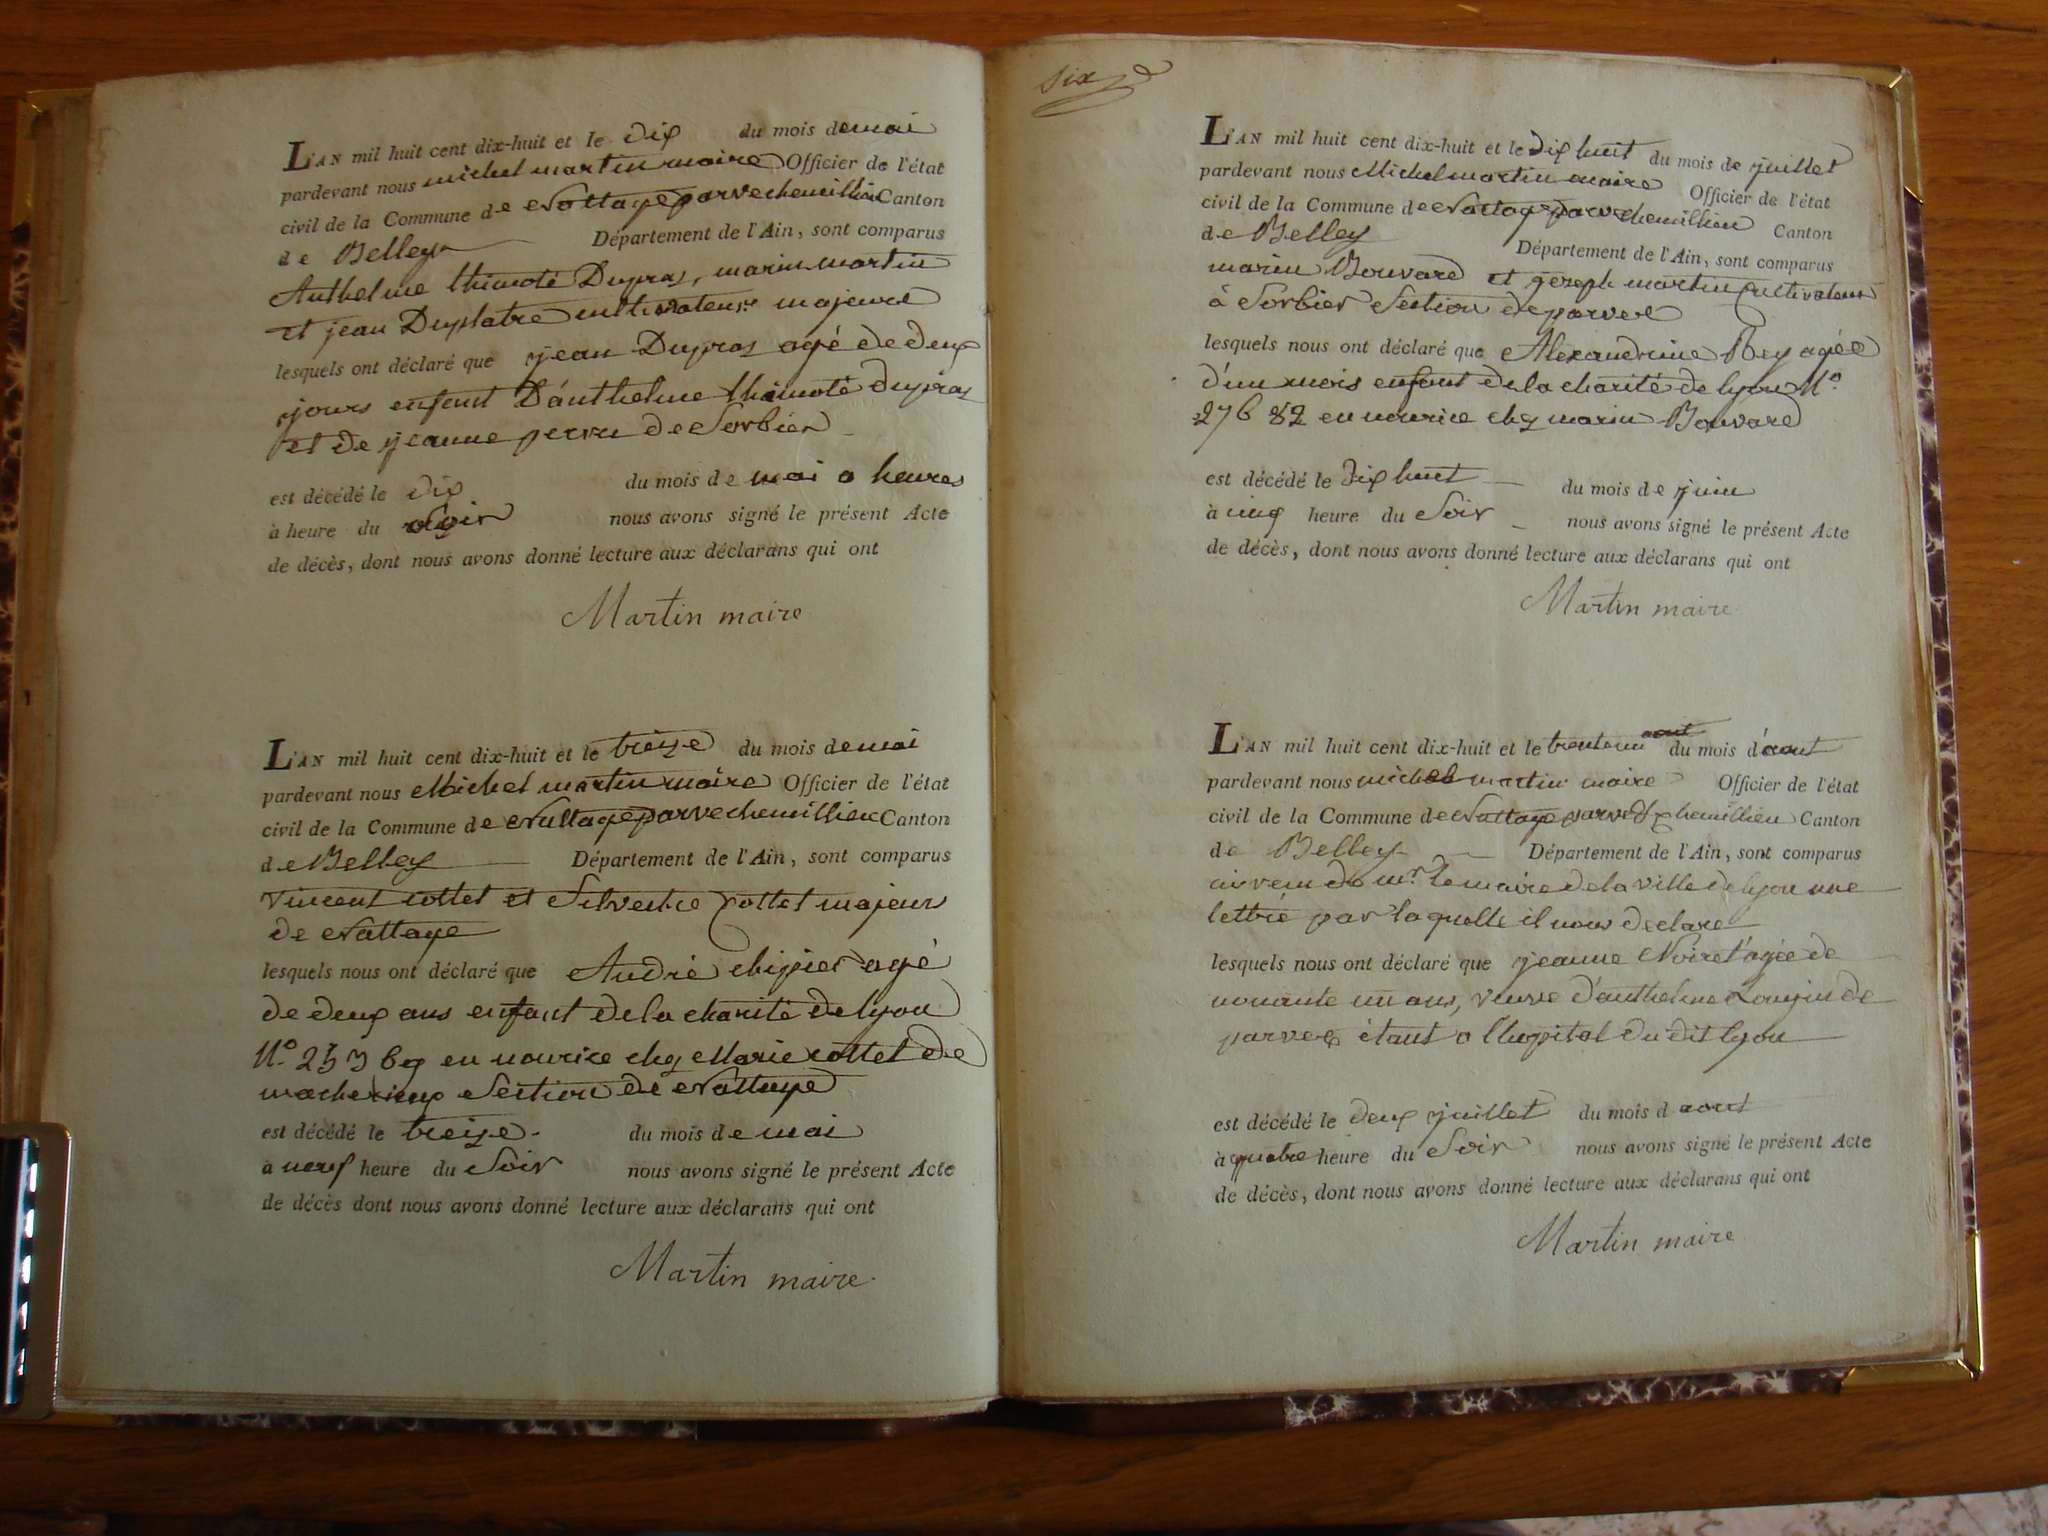 L'AN mil huit cent dix-huit et le dix du mois de mai
pardevant nous michel martin maire Officier de l'état
civil de la Commune de Nattage parve chemillieu Canton
de Belley Département de l'Ain, sont comparus
Anthelme thimoté Dupras, marin martin
et jean Duplatre cultivateurs majeurs
lesquels ont déclaré que jean Dupras agé de deux
jours enfant D'anthelme thimoté dupras
et de jeanne de Sorbier
est décédé le dix du mois de mai a heures
à heure du soir nous avons signé le présent Acte
de décès, dont nous avons donné lecture aux déclarans qui ont
Martin maire
L'AN mil huit cent dix-huit et le treize du mois de mai
pardevant nous Michel martin maire Officier de l'état
civil de la Commune de Nattage parve chemillieu Canton
de Belley Département de l'Ain, sont comparus
Vincent cottet et Silvestre cottet majeurs
de Nattage
lesquels nous ont déclaré que André agé
de deux ans enfant de la charité de lyon
N.º en nourice chez Marie cottet de
Section de Nattage
est décédé le treize du mois de mai
à neuf heure du Soir nous avons signé le présent Acte
de décès dont nous avons donné lecture aux déclarans qui ont
Martin maire.
six
L'AN mil huit cent dix-huit et le dix huit du mois de juillet
pardevant nous Michel martin maire Officier de l'état
civil de la Commune de Nattage parve chemillieu Canton
de Belley Département de l'Ain, sont comparus
marin Bouvard et joseph martin cultivateurs
à Sorbier Section de parve
lesquels nous ont déclaré que Alexandrine Rey agée
d'un mois enfant de la charité de lyon Nº
276 82 en nourice chez marin Bouvard
est décédé le dix huit du mois de juin
à cinq heure du Soir nous avons signé le présent Acte
de décès, dont nous avons donné lecture aux déclarans qui ont
Martin maire
L'AN mil huit cent dix-huit et le trente un aout du mois d'aout
pardevant nous michel martin maire Officier de l'état
civil de la Commune de Nattage parve & chemillieu Canton
de Belley Département de l'Ain, sont comparus
de mr. le maire de la ville de lyon une
lettre par laquelle il nous declare
lesquels nous ont déclaré que jeanne Noiret agée de
nonante un ans, veuve d'anthelme Longin de
parve étant a l'hopital du dit lyon
est décédé le deux juillet du mois d aout
à quatre heure du Soir nous avons signé le présent Acte
de décès, dont nous avons donné lecture aux déclarans qui ont
Martin maire